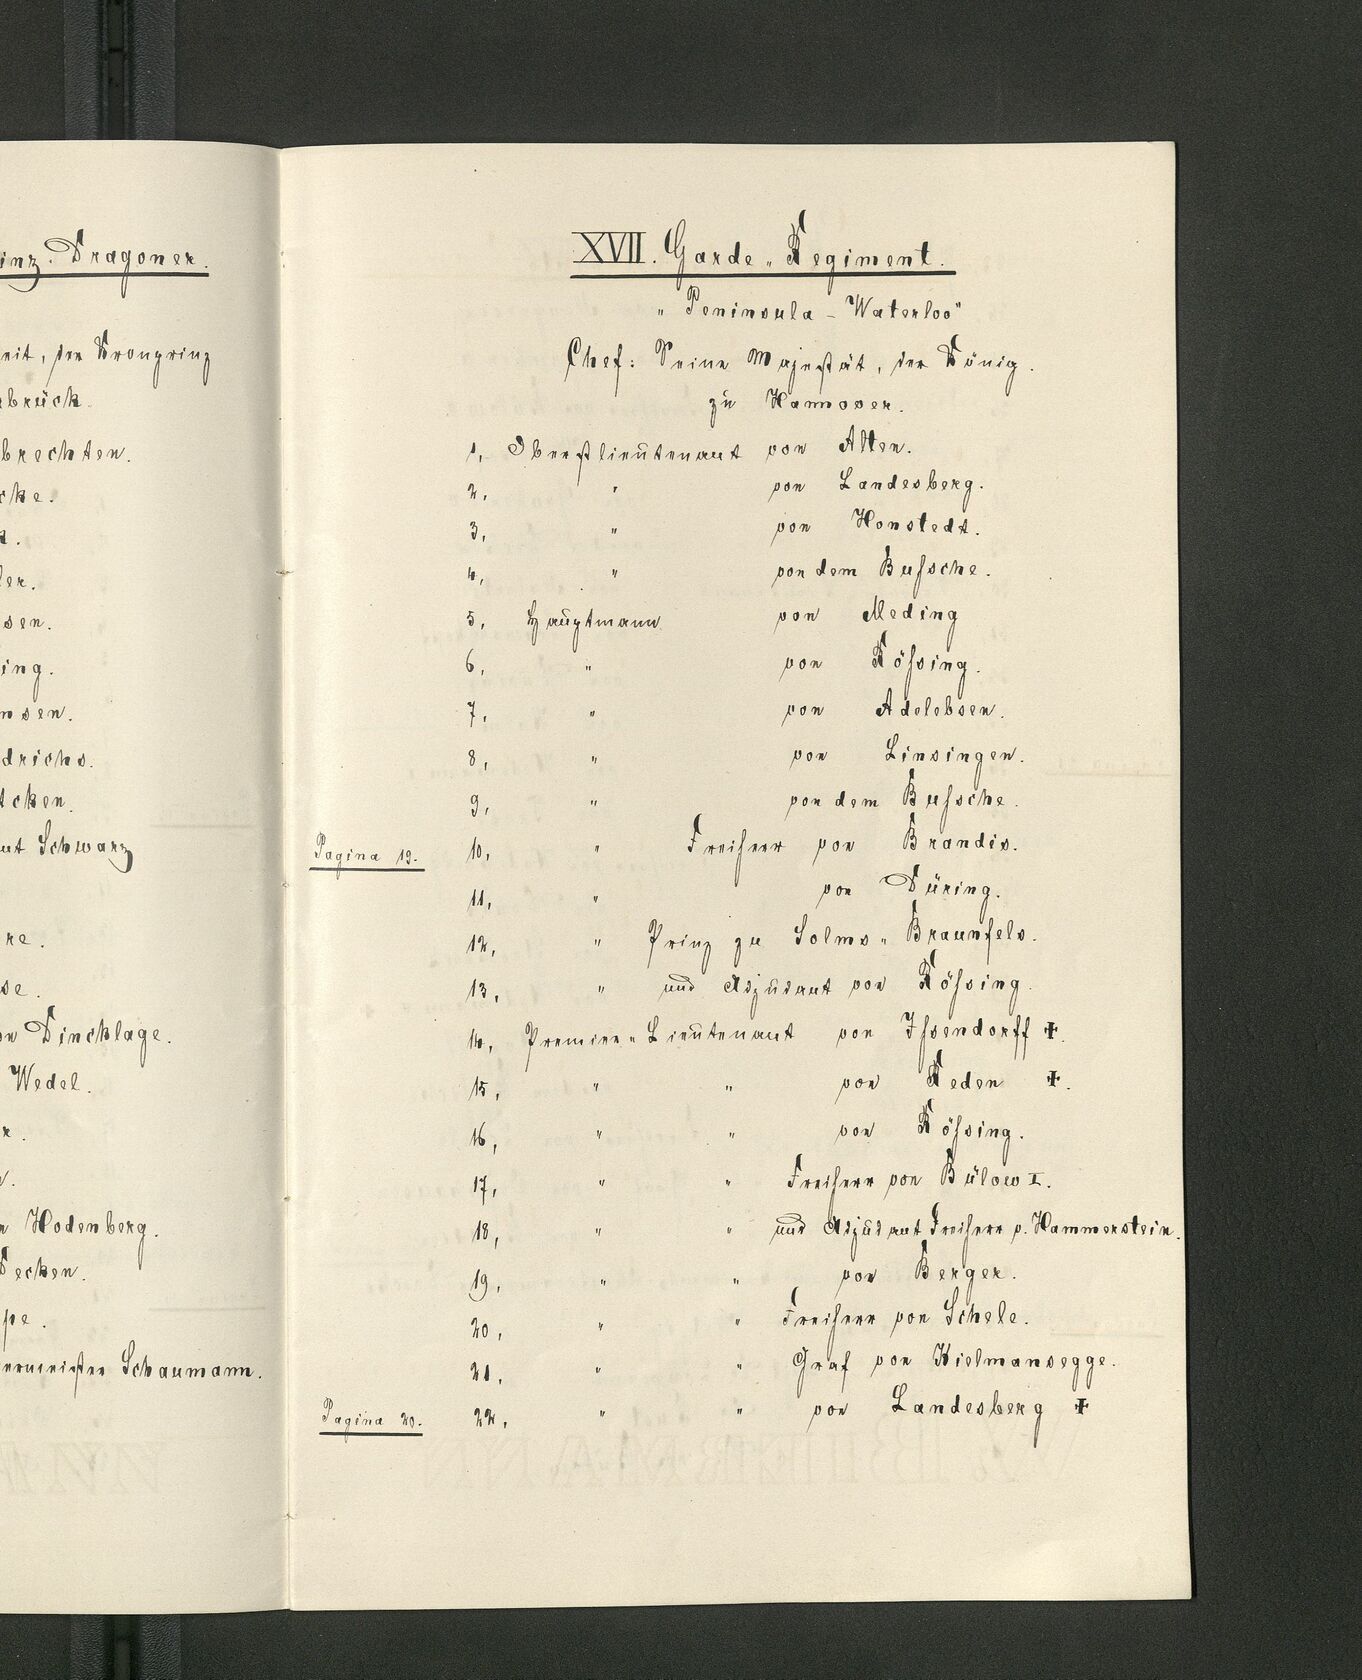 inz. Dragoner.
eit, der Kronprinz
brück.
brechten.
cke.
ler.
sen.
ing.
nsen.
drichs.
tcken.
ut Schwarz
re.
se.
on Dincklage.
Wedel.
r.
n Hodenberg.
Decken.
pe.
ermeister Schaumann.
XVII. Garde-Regiment.
"Peninsula - Waterloo"
Chef: Seine Majestät, der König
zu Hannover.
1, Oberstlieutenant von Alten.
2, " von Landesberg.
3, " von Honstedt.
4, " von dem Buſsche.
5, Hauptmann von Meding
6, " von Röſsing.
7, " von Adelebsen.
8, " von Linsingen.
9, " von dem Buſsche.
Pagina 19. 10, " Freiherr von Brandis.
11, " von Düring.
12, " Prinz zu Solms-Braunfels.
13, " und Adjudant von Röſsing.
14, Premier-Lieutenant von Iſsendorff ✝.
15, " " von Reden ✝.
16, " " von Röſsing.
17, " " Freiherr von Bülow I.
18, " " und Adjudant Freiherr v. Hammerstein.
19, " " von Berger.
20, " " Freiherr von Schele.
21, " " Graf von Kielmansegge.
Pagina 20. 22, " " von Landesberg ✝